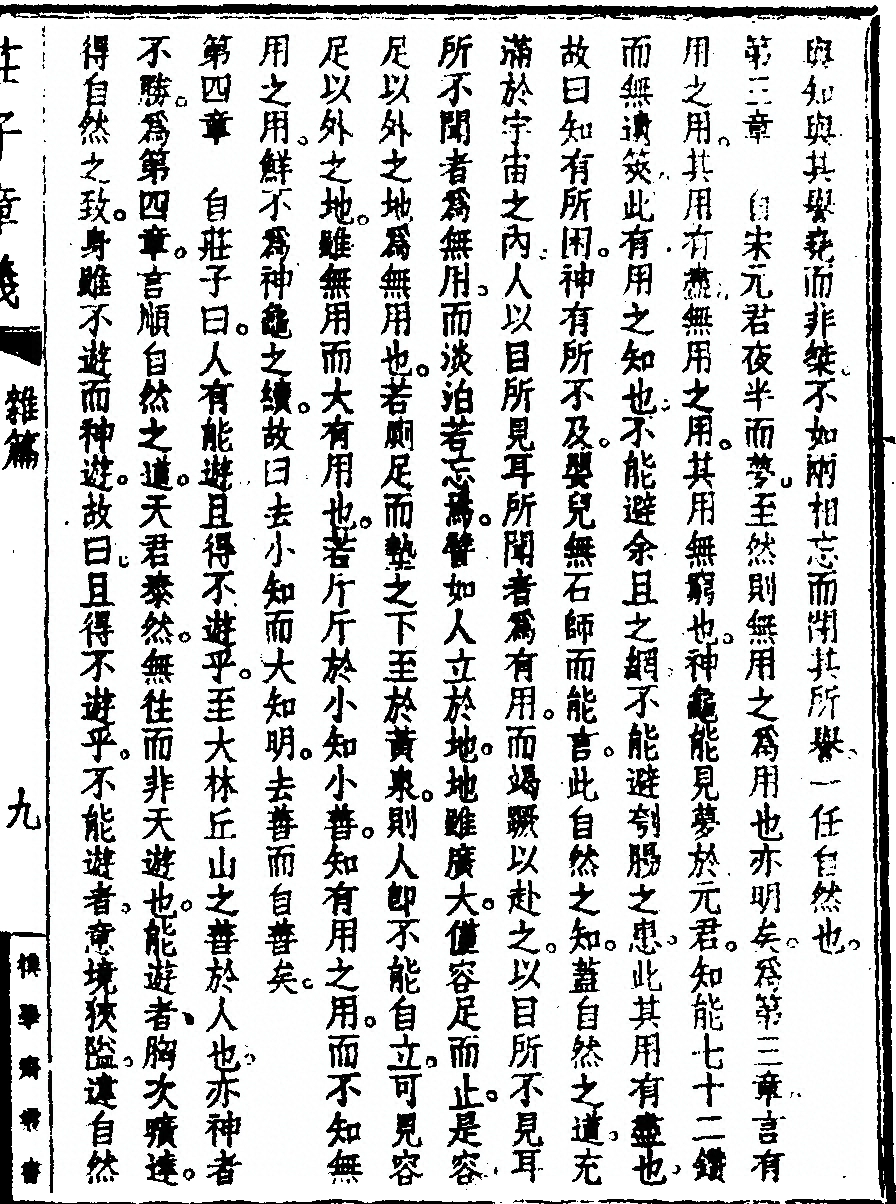 與知與其譽堯而非桀。不如兩相忘而閉其所譽。一任自然也。
第三章　自宋元君夜半而夢。至然則無用之爲用也亦明矣。爲第三章。言有
用之用。其用有盡。無用之用。其用無窮也。神龜能見夢於元君。知能七十二鑽
而無遺筴。此有用之知也。不能避余且之網。不能避刳腸之患。此其用有盡也。
故曰知有所困。神有所不及。嬰兒無石師而能言。此自然之知。蓋自然之道。充
滿於宇宙之內。人以目所見耳所聞者爲有用。而竭蹶以赴之。以目所不見耳
所不聞者爲無用。而淡泊若忘焉。譬如人立於地。地雖廣大。僅容足而止。是容
足以外之地爲無用也。若廁足而墊之下至於黃泉。則人卽不能自立。可見容
足以外之地。雖無用而大有用也。若斤斤於小知小善。知有用之用。而不知無
用之用。鮮不爲神龜之續。故曰去小知而大知明。去善而自善矣。
第四章　自莊子曰。人有能遊且得不遊乎。至大林丘山之善於人也。亦神者
不勝。爲第四章。言順自然之道。天君泰然。無往而非天遊也。能遊者、胸次曠達。
得自然之致。身雖不遊而神遊。故曰且得不遊乎。不能遊者。意境狹隘。違自然
莊子章義
雜篇
九
樸學齋叢書